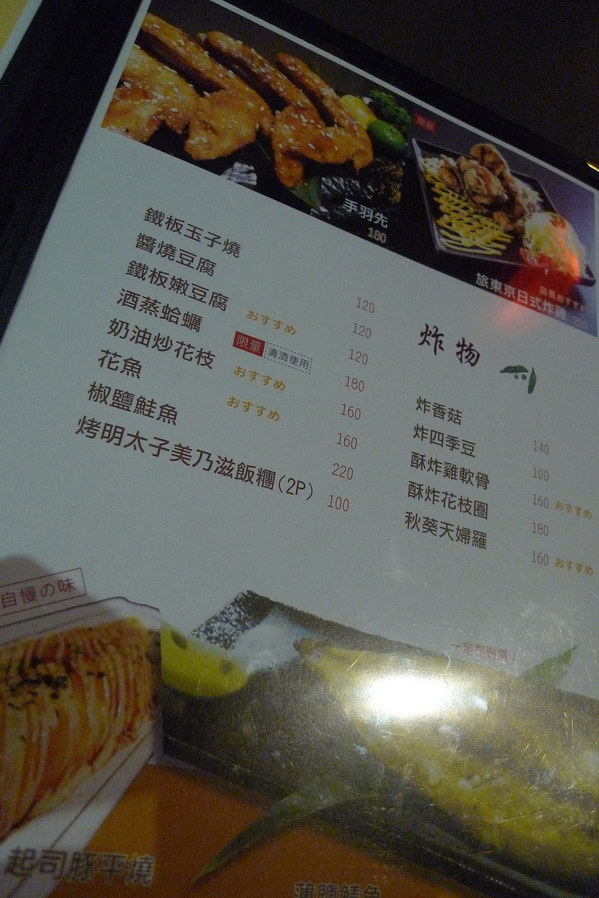 手羽先
180
限量
店長おすすめ
旅東京日式炸雞
鐵板玉子燒 120
醬燒豆腐 120
鐵板嫩豆腐 おすすめ 120
酒蒸蛤蠣 限量 清酒使用 180
奶油炒花枝 おすすめ 160
花魚 おすすめ 160
椒鹽鮭魚 220
烤明太子美乃滋飯糰(2P) 100
炸物
炸香菇 140
炸四季豆 100
酥炸雞軟骨 160 おすすめ
酥炸花枝圈 180
秋葵天婦羅 160 おすすめ
自慢の味
起司豚平燒
薄鹽鯖魚